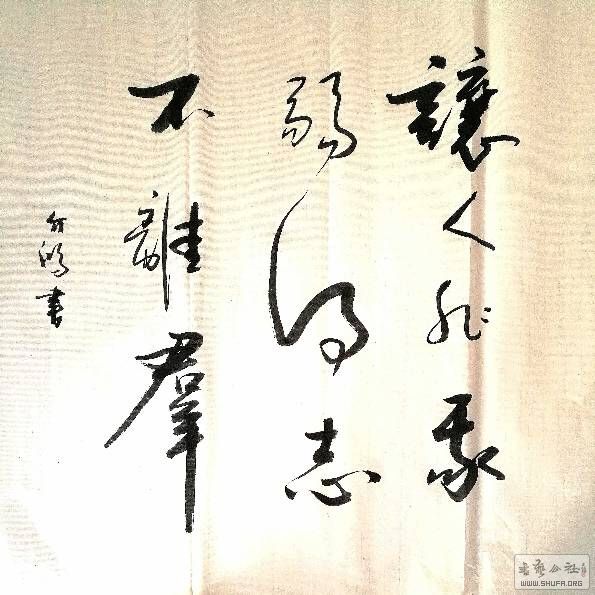 讓人非我
弱得志
不離羣
書
书艺公社
WWW.SHUFA.ORG